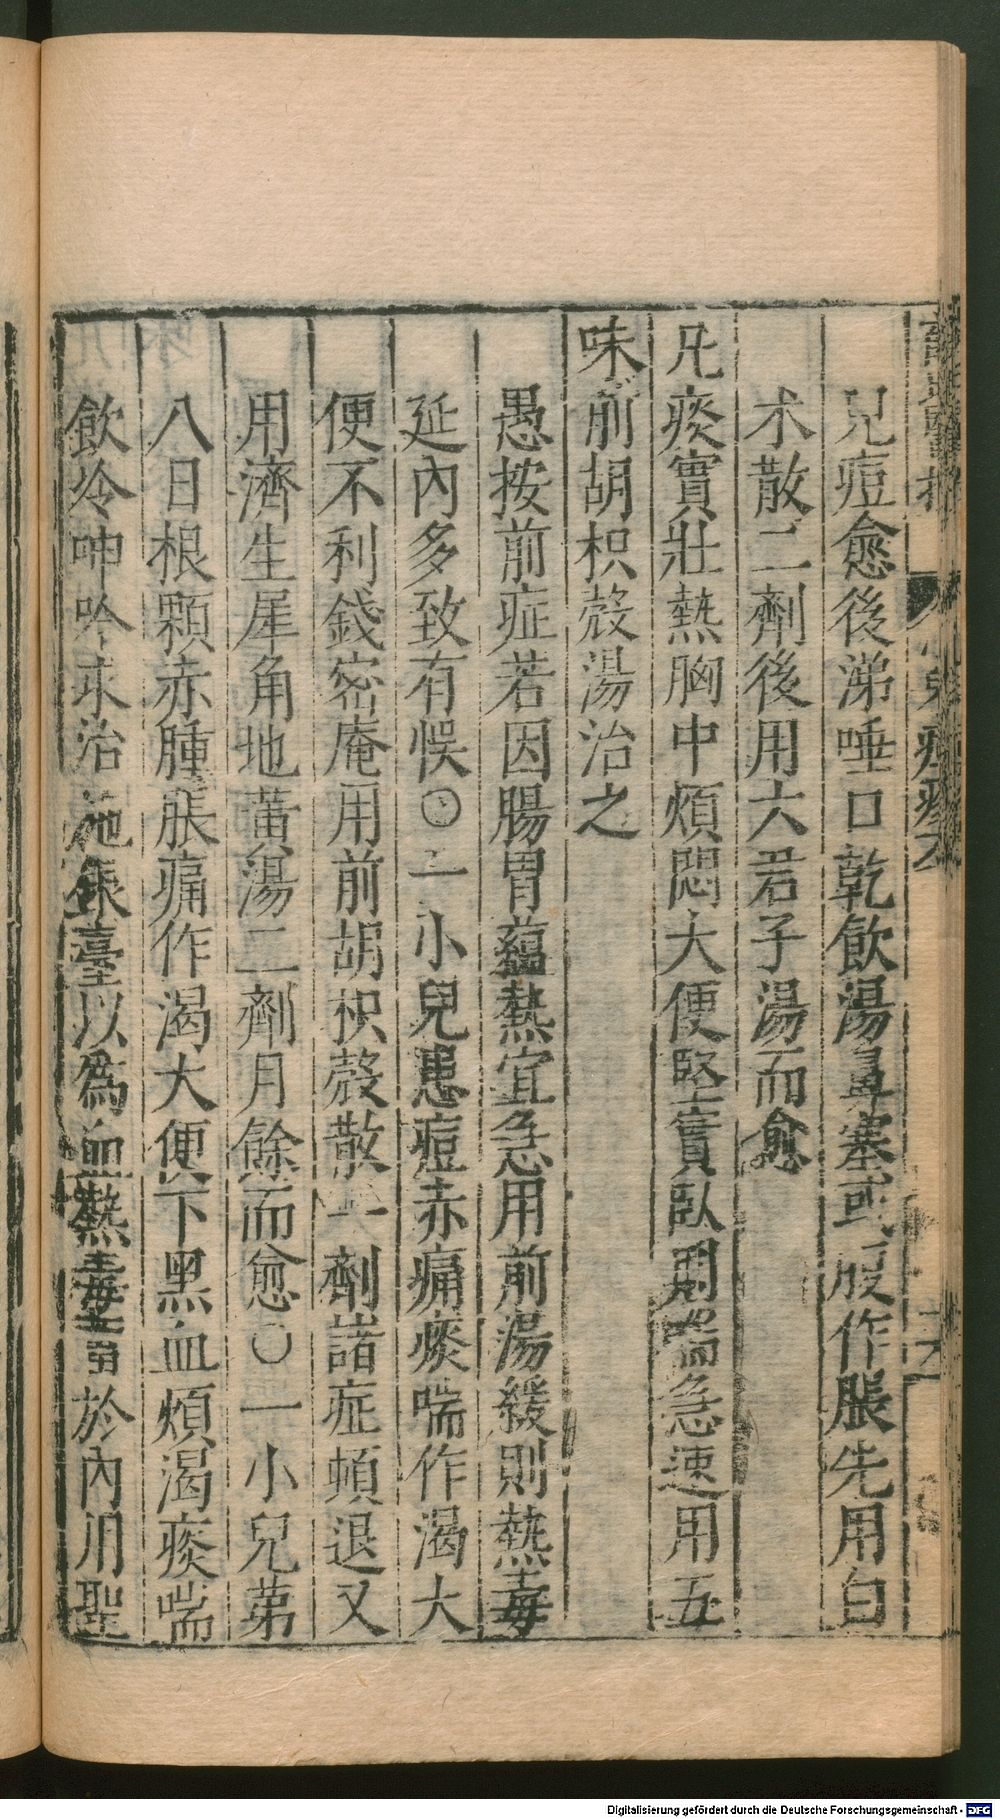 兒痘愈後涕唾口乾飲湯鼻塞或服作脹先用白
术散二劑後用六君子湯而愈
凡痰實壯熱胸中煩悶大便堅實臥則喘急速用五
味前胡枳殼湯治之
愚按前症若因腸胃蘊熱宜急用前湯緩則熱毒
延內多致有悞〇一小兒患痘赤痛痰喘作渴大
便不利錢密庵用前胡枳殼散一劑諸症頓退又
用濟生犀角地黃湯二劑月餘而愈〇一小兒第
八日根顆赤腫脹痛作渴大便下黑血煩渴痰喘
飲冷呻吟求治施銀臺以為血熱毒畱於內用聖
Digitalisierung gefördert durch die Deutsche Forschungsgemeinschaft - DFG